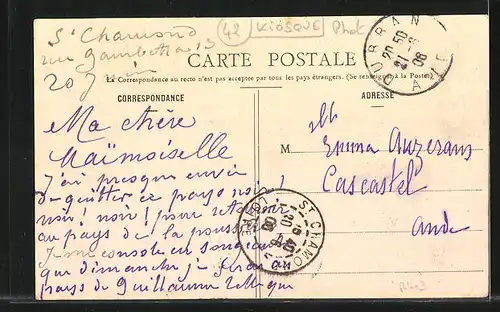 St Chamond
rue Gambetta 13
20 Juin
42 KIOSQUE Phot
CARTE POSTALE
La Correspondance au recto n'est pas acceptée par tous les pays étrangers. (Se renseigner à la Poste)
CORRESPONDANCE
ADRESSE
Ma chère
Maïmoiselle
J'ai presque envie
de quitter ce pays noir !
noir ! noir ! pour retourner
au pays de la poussière
Je me console en songeant
que dimanche je serai
pays de Guillaume Telle que
M
Emma Auzerans
Cascastel
Aude
DURBAN
20 50
21 -6
06
AUDE
ST CHAMOND
15 40
20 -6
06
LOIRE